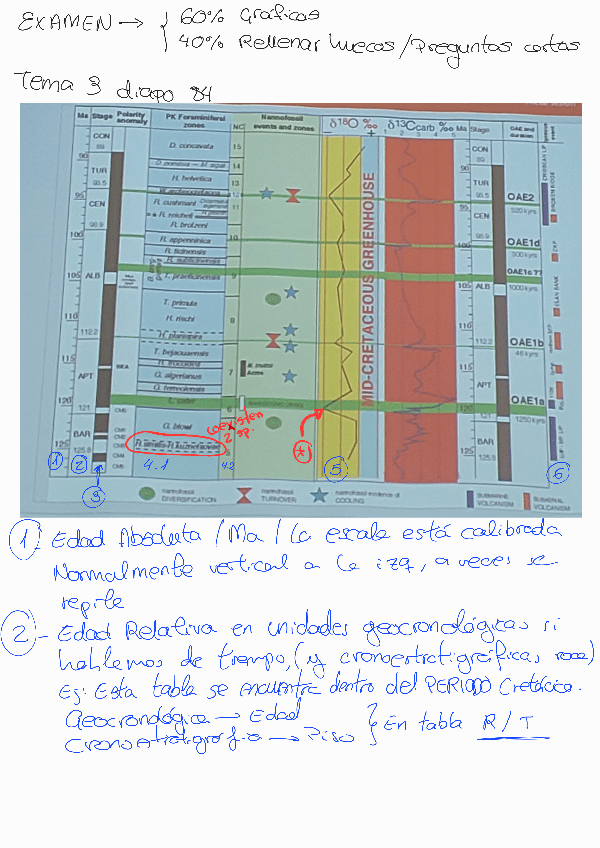 EXAMEN → { 60% Gráficas
40% Rellenar huecos/Preguntas cortas
Tema 3 diapo 84
Ma Stage Polarity anomaly PK Foraminiferal zones NC Nannofossil events and zones δ18O ‰ δ13Ccarb ‰ Ma Stage OAE and duration
- + 1 2 3 4 5
CON
89
D. concavata 15
90
14
TUR
H. helvetica 13
93.5
95
12
OAE2
CEN
R. cushmani 11
520 kyrs
R. reicheli
98.9
R. brotzeni
R. appenninica 10
OAE1d
R. ticinensis
300 kyrs
R. subticinensis
OAE1c ??
T. praeticinensis 9
105 ALB
1000 kyrs
T. primula
H. rischi 8
112.2
H. planispira
OAE1b
46 kyrs
T. bejaouaensis
115
APT
G. algerianus 7
G. ferreolensis
OAE1a
120
121
6
1250 kyrs
G. blowi
BAR
125
125.8
MID-CRETACEOUS GREENHOUSE
coexisten
2 sp.
*
1 2 3 4.1 4.2 5 6
nannofossil DIVERSIFICATION
nannofossil TURNOVER
nannofossil evidence of COOLING
SUBMARINE VOLCANISM
SUBAERIAL VOLCANISM
1 - Edad Absoluta / Ma / La escala está calibrada
Normalmente vertical a la izq, a veces se
repite
2 - Edad Relativa en unidades geocronológicas si
hablamos de tiempo, (y cronoestratigráficas, roca)
Ej: Esta tabla se encuentra dentro del PERIODO Cretácico.
Geocronológica → Edad
Cronoestratigráfica → Piso } En tabla R/T